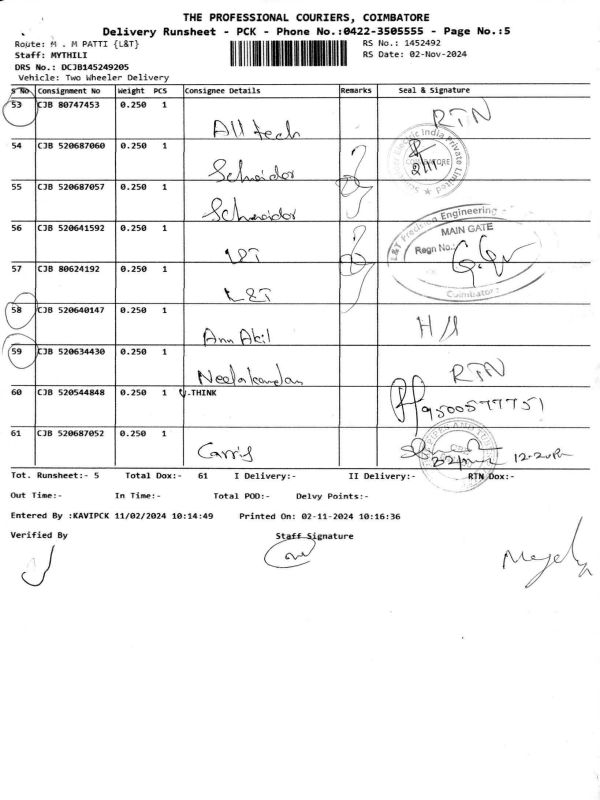 THE PROFESSIONAL COURIERS, COIMBATORE
Delivery Runsheet - PCK - Phone No.:0422-3505555 - Page No.:5
Route: M . M PATTI {L&T} RS No.: 1452492
Staff: MYTHILI RS Date: 02-Nov-2024
DRS No.: DCJB145249205
Vehicle: Two Wheeler Delivery
S No Consignment No Weight PCS Consignee Details Remarks Seal & Signature
53 CJB 80747453 0.250 1 RTN
All tech
54 CJB 520687060 0.250 1
Schneider
55 CJB 520687057 0.250 1
Schneider
56 CJB 520641592 0.250 1 L&T Precision Engineering
MAIN GATE
L&T Regn No.:
57 CJB 80624192 0.250 1
L&T Coimbatore
58 CJB 520640147 0.250 1 H/L
Ann Akil
59 CJB 520634430 0.250 1 RTN
Neelakandan
60 CJB 520544848 0.250 1 .THINK 9500577751
61 CJB 520687052 0.250 1
12.20 Pm
Tot. Runsheet:- 5 Total Dox:- 61 I Delivery:- II Delivery:- RTN Dox:-
Out Time:- In Time:- Total POD:- Delvy Points:-
Entered By :KAVIPCK 11/02/2024 10:14:49 Printed On: 02-11-2024 10:16:36
Verified By Staff Signature